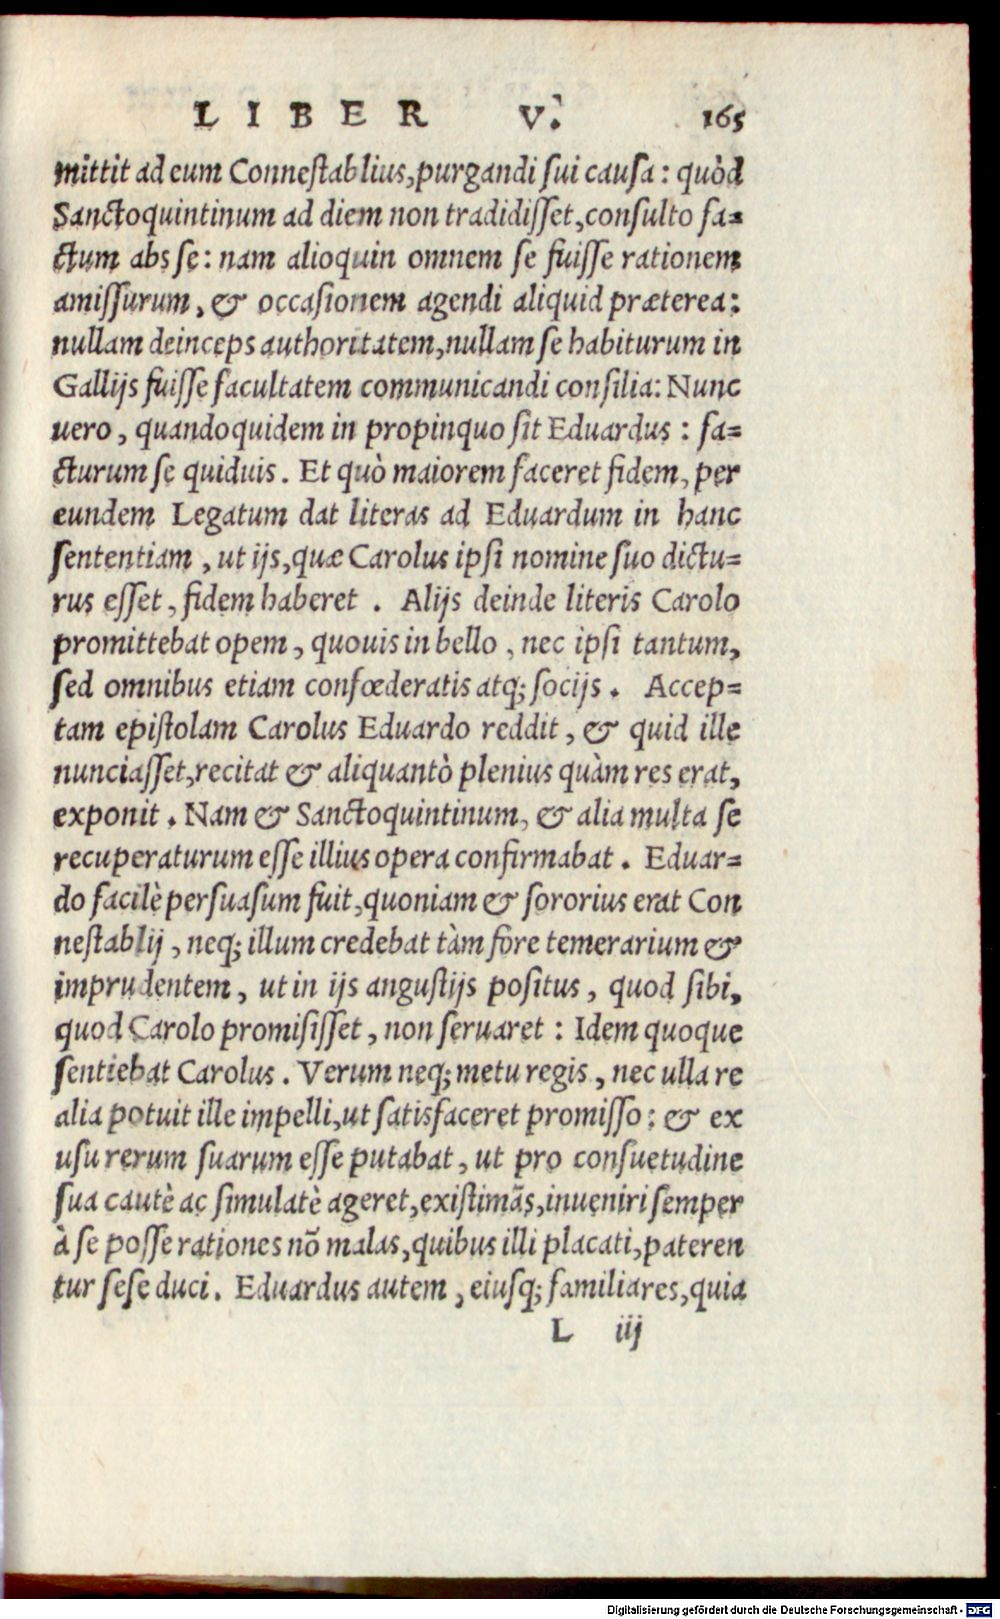 LIBER V. 165
mittit ad eum Connestablius, purgandi sui causa: quòd
Sanctoquintinum ad diem non tradidisset, consulto fa=
ctum abs se: nam alioquin omnem se fuisse rationem
amissurum, & occasionem agendi aliquid præterea:
nullam deinceps authoritatem, nullam se habiturum in
Gallijs fuisse facultatem communicandi consilia: Nunc
uero, quandoquidem in propinquo sit Eduardus: fa=
cturum se quiduis. Et quò maiorem faceret fidem, per
eundem Legatum dat literas ad Eduardum in hanc
sententiam, ut ijs, quæ Carolus ipsi nomine suo dictu=
rus esset, fidem haberet. Alijs deinde literis Carolo
promittebat opem, quouis in bello, nec ipsi tantum,
sed omnibus etiam confœderatis atq; socijs. Accep=
tam epistolam Carolus Eduardo reddit, & quid ille
nunciasset, recitat & aliquantò plenius quàm res erat,
exponit. Nam & Sanctoquintinum, & alia multa se
recuperaturum esse illius opera confirmabat. Eduar=
do facilè persuasum fuit, quoniam & sororius erat Con
nestablij, neq; illum credebat tàm fore temerarium &
imprudentem, ut in ijs angustijs positus, quod sibi,
quod Carolo promisisset, non seruaret: Idem quoque
sentiebat Carolus. Verum neq; metu regis, nec ulla re
alia potuit ille impelli, ut satisfaceret promisso: & ex
usu rerum suarum esse putabat, ut pro consuetudine
sua cautè ac simulatè ageret, existimãs, inueniri semper
à se posse rationes nõ malas, quibus illi placati, pateren
tur sese duci. Eduardus autem, eiusq; familiares, quia
L iij
Digitalisierung gefördert durch die Deutsche Forschungsgemeinschaft - DFG